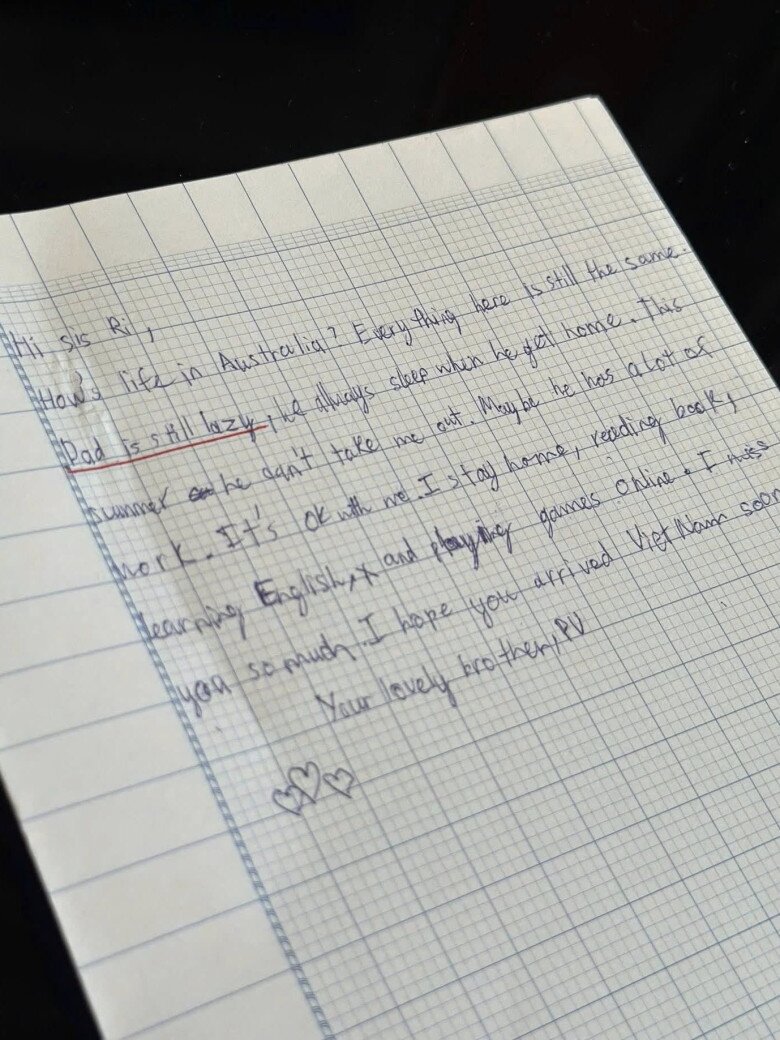 Hi sis Ri,
How's life in Australia? Everything here is still the same.
Dad is still lazy, he always sleep when he get home. This
summer he can't take me out. Maybe he has a lot of
work. It's ok with me. I stay home, reading book,
learning English, and playing games online. I miss
you so much. I hope you arrived Viet Nam soon
Your lovely brother, PV